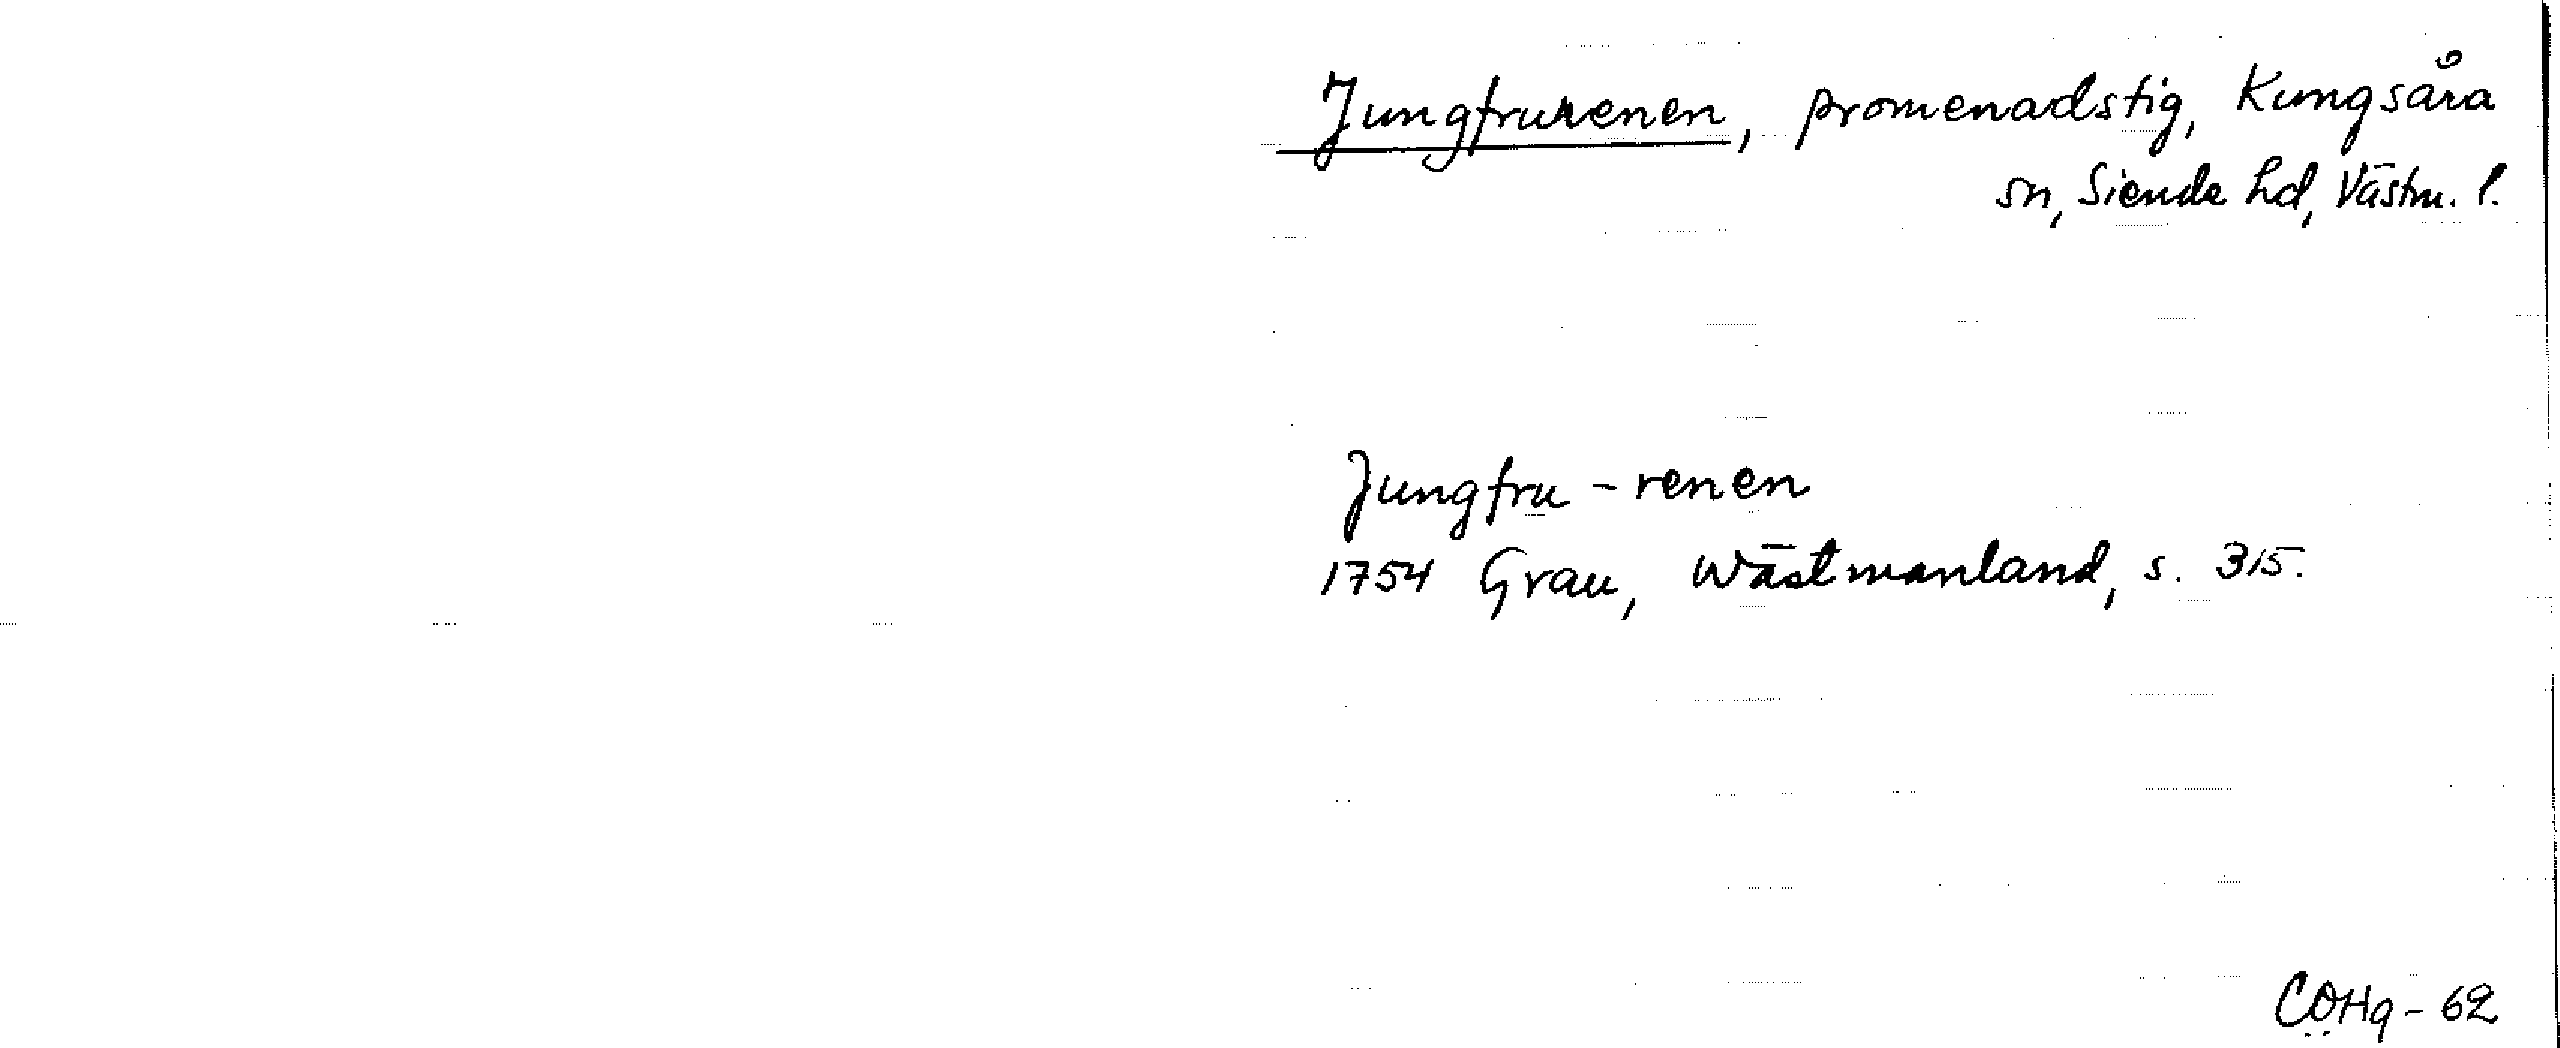 Jungfrurenen, promenadstig, Kungsåra
sn, Siende hd, Västm. l.
Jungfru-renen
1754 Grau, Wästmanland, s. 315.
COHg-62